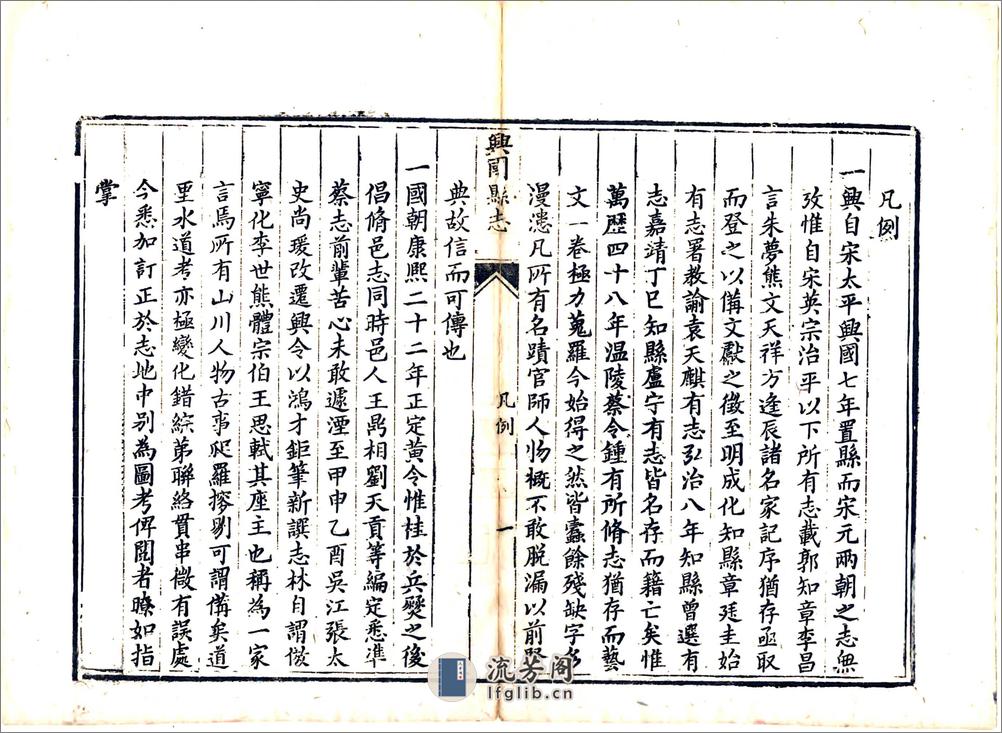 凡例
一興自宋太平興國七年置縣而宋元兩朝之志無
攷惟自宋英宗治平以下所有志載郭知章李昌
言朱夢熊文天祥方逢辰諸名家記序猶存亟取
而登之以備文獻之徵至明成化知縣章廷圭始
有志署教諭袁天麒有志弘治八年知縣曾選有
志嘉靖丁巳知縣盧宁有志皆名存而籍亡矣惟
萬歷四十八年温陵蔡令鍾有所脩志猶存而藝
文一卷極力蒐羅今始得之然皆蠹餘殘缺字多
漫漶凡所有名蹟官師人物概不敢脱漏以前賢
典故信而可傳也
興國縣志
凡例
一
一國朝康熙二十二年正定黃令惟桂於兵燹之後
倡脩邑志同時邑人王鼎相劉天貢等編定悉準
蔡志前輩苦心未敢遽湮至甲申乙酉吳江張太
史尚瑗改遷興令以鴻才鉅筆新譔志林自謂倣
寧化李世熊體宗伯王思軾其座主也稱為一家
言焉所有山川人物古事爬羅擰剔可謂備矣道
里水道考亦極變化錯綜第聯絡貫串微有誤處
今悉加訂正於志地中别為圖考俾閲者暸如指
掌
流芳阁
lfglib.cn